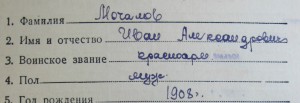 1. Фамилия Мочалов
2. Имя и отчество Иван Александрович
3. Воинское звание красноарм
4. Пол муж
5. Год рождения 1908 г.